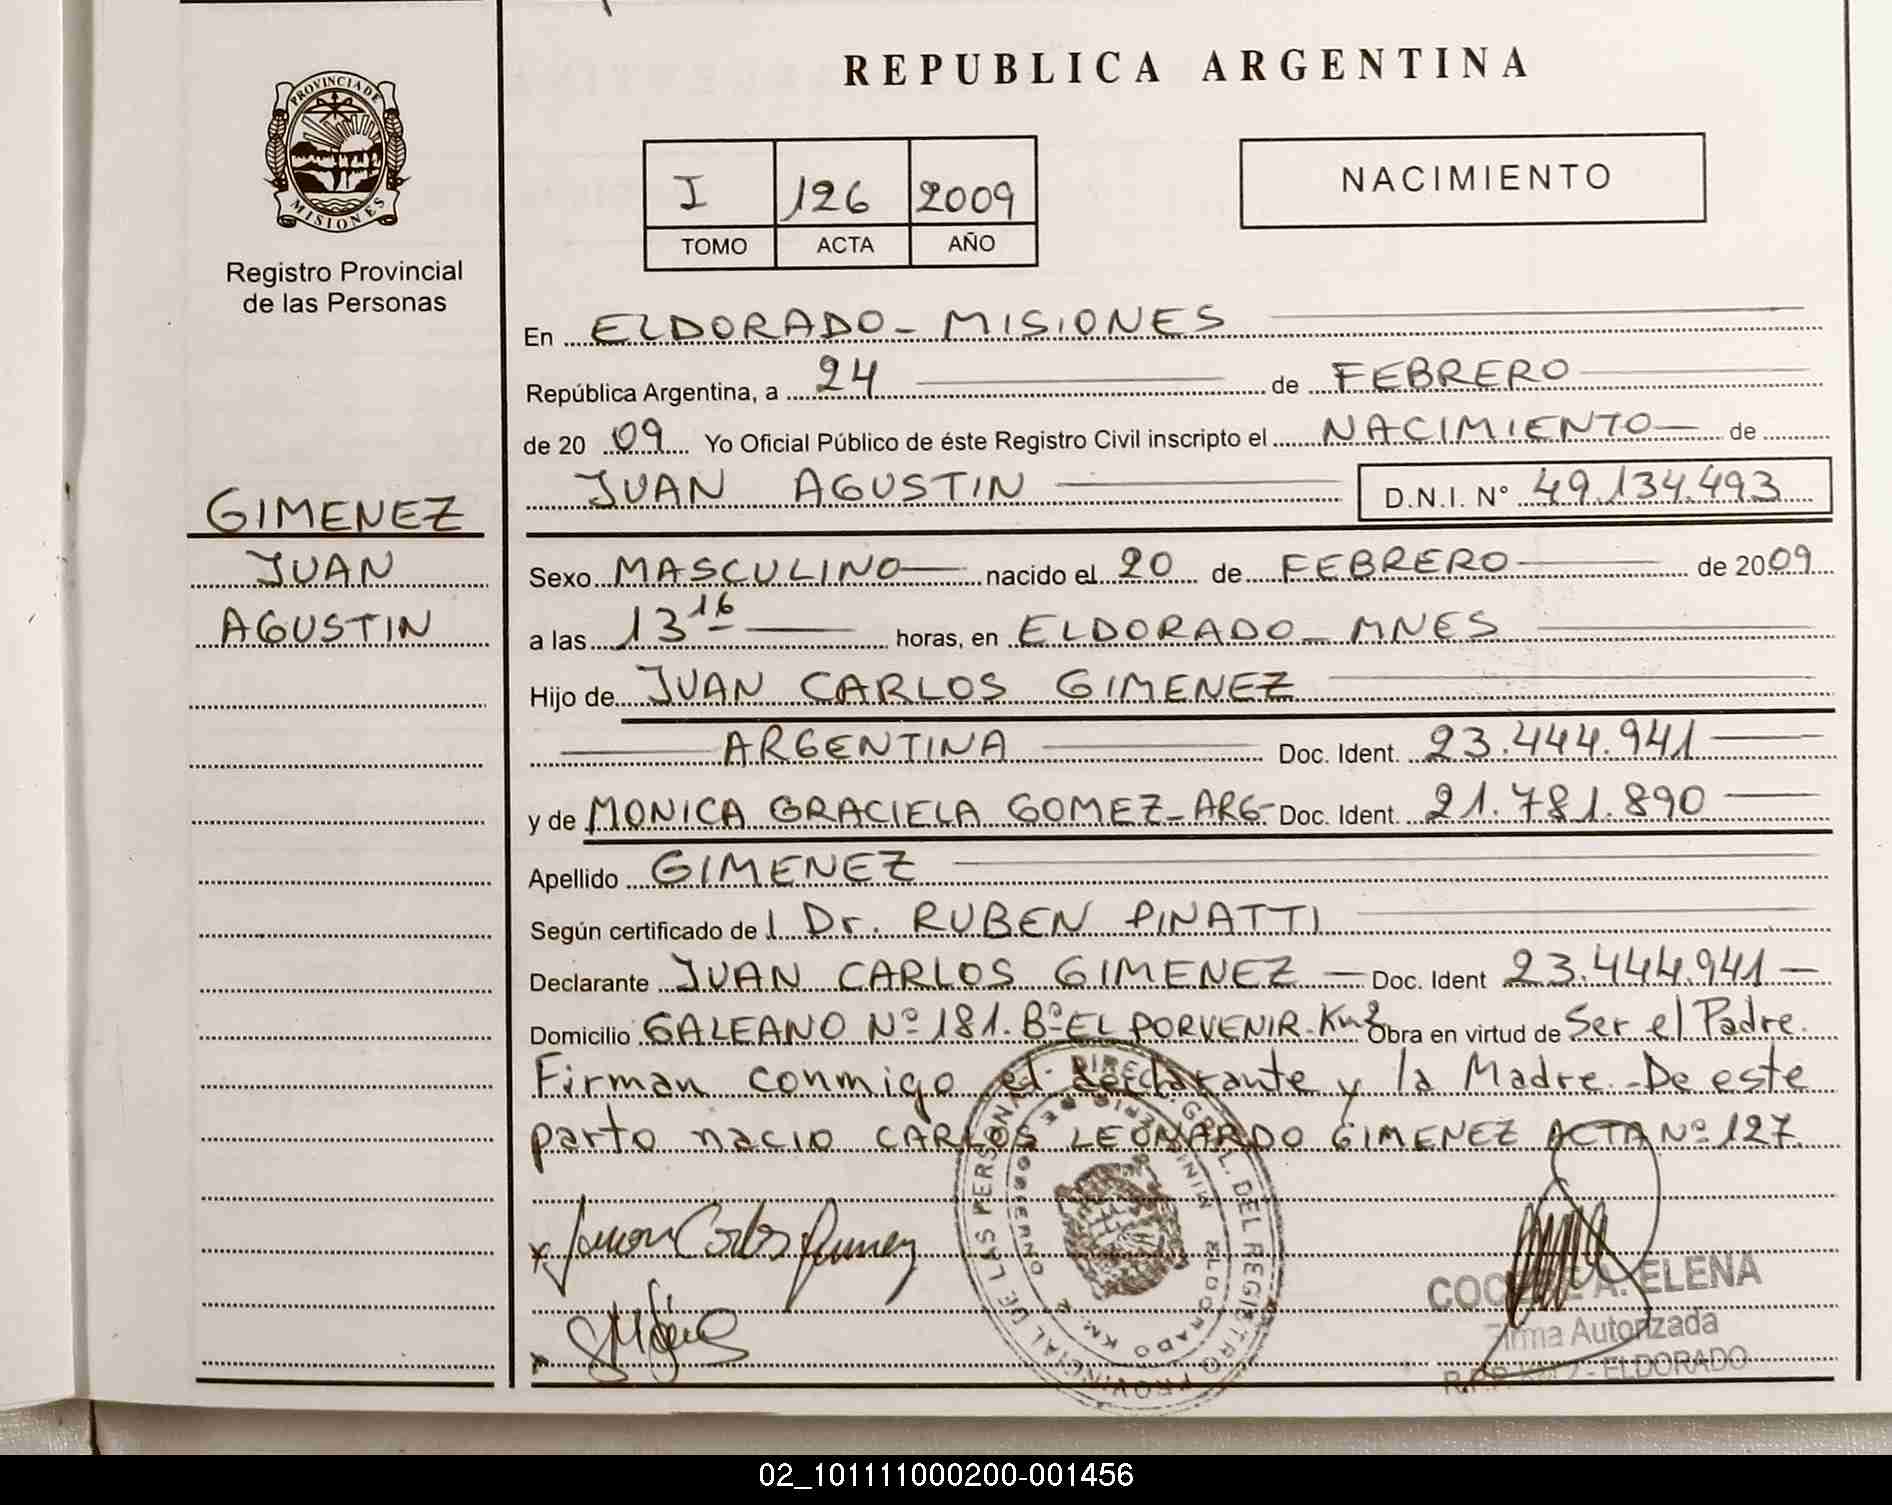 PROVINCIA DE
MISIONES
Registro Provincial
de las Personas
GIMENEZ
JUAN
AGUSTIN
REPUBLICA ARGENTINA
I 126 2009
TOMO ACTA AÑO
NACIMIENTO
En ELDORADO - MISIONES
República Argentina, a 24 de FEBRERO
de 20 09 Yo Oficial Público de éste Registro Civil inscripto el NACIMIENTO de
JUAN AGUSTIN D.N.I. N° 49.134.493
Sexo MASCULINO nacido el 20 de FEBRERO de 2009
a las 13 16 horas, en ELDORADO - MNES
Hijo de JUAN CARLOS GIMENEZ
ARGENTINA Doc. Ident. 23.444.941
y de MONICA GRACIELA GOMEZ - ARG- Doc. Ident. 21.781.890
Apellido GIMENEZ
Según certificado de l Dr. RUBEN PINATTI
Declarante JUAN CARLOS GIMENEZ Doc. Ident 23.444.941
Domicilio GALEANO Nº 181. Bº EL PORVENIR. Km 2 Obra en virtud de Ser el Padre.
Firman conmigo el declarante y la Madre. - De este
parto nacio CARLOS LEONARDO GIMENEZ ACTA Nº 127.
DIREC. GRAL. DEL REGISTRO PROVINCIAL DE LAS PERSONAS
GOBIERNO
ELDORADO KM. 2
x Juan Carlos Gimenez
x
A. ELENA
Firma Autorizada
R.P.P. KM 2 - ELDORADO
02_101111000200-001456